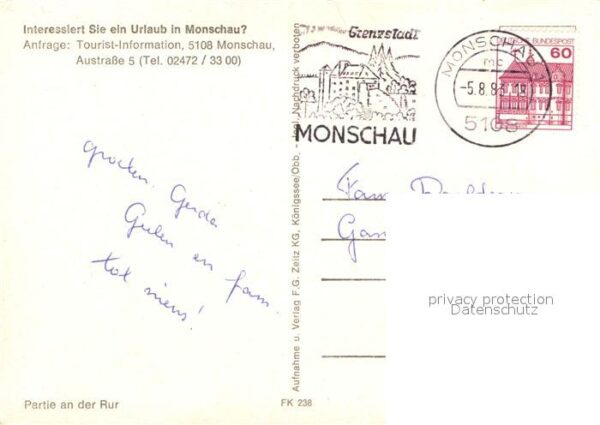 Interessiert Sie ein Urlaub in Monschau?
Anfrage: Tourist-Information, 5108 Monschau,
Austraße 5 (Tel. 02472 / 33 00)
Grenzstadt
MONSCHAU
MONSCHAU
mc
-5.8.8
5108
DEUTSCHE BUNDESPOST
60
groeten. Gerda
en fam.
tot ziens!
Fam.
Aufnahme u. Verlag F.G. Zeitz KG, Königssee/Obb. - Jegl. Nachdruck verboten
privacy protection
Datenschutz
Partie an der Rur
FK 238